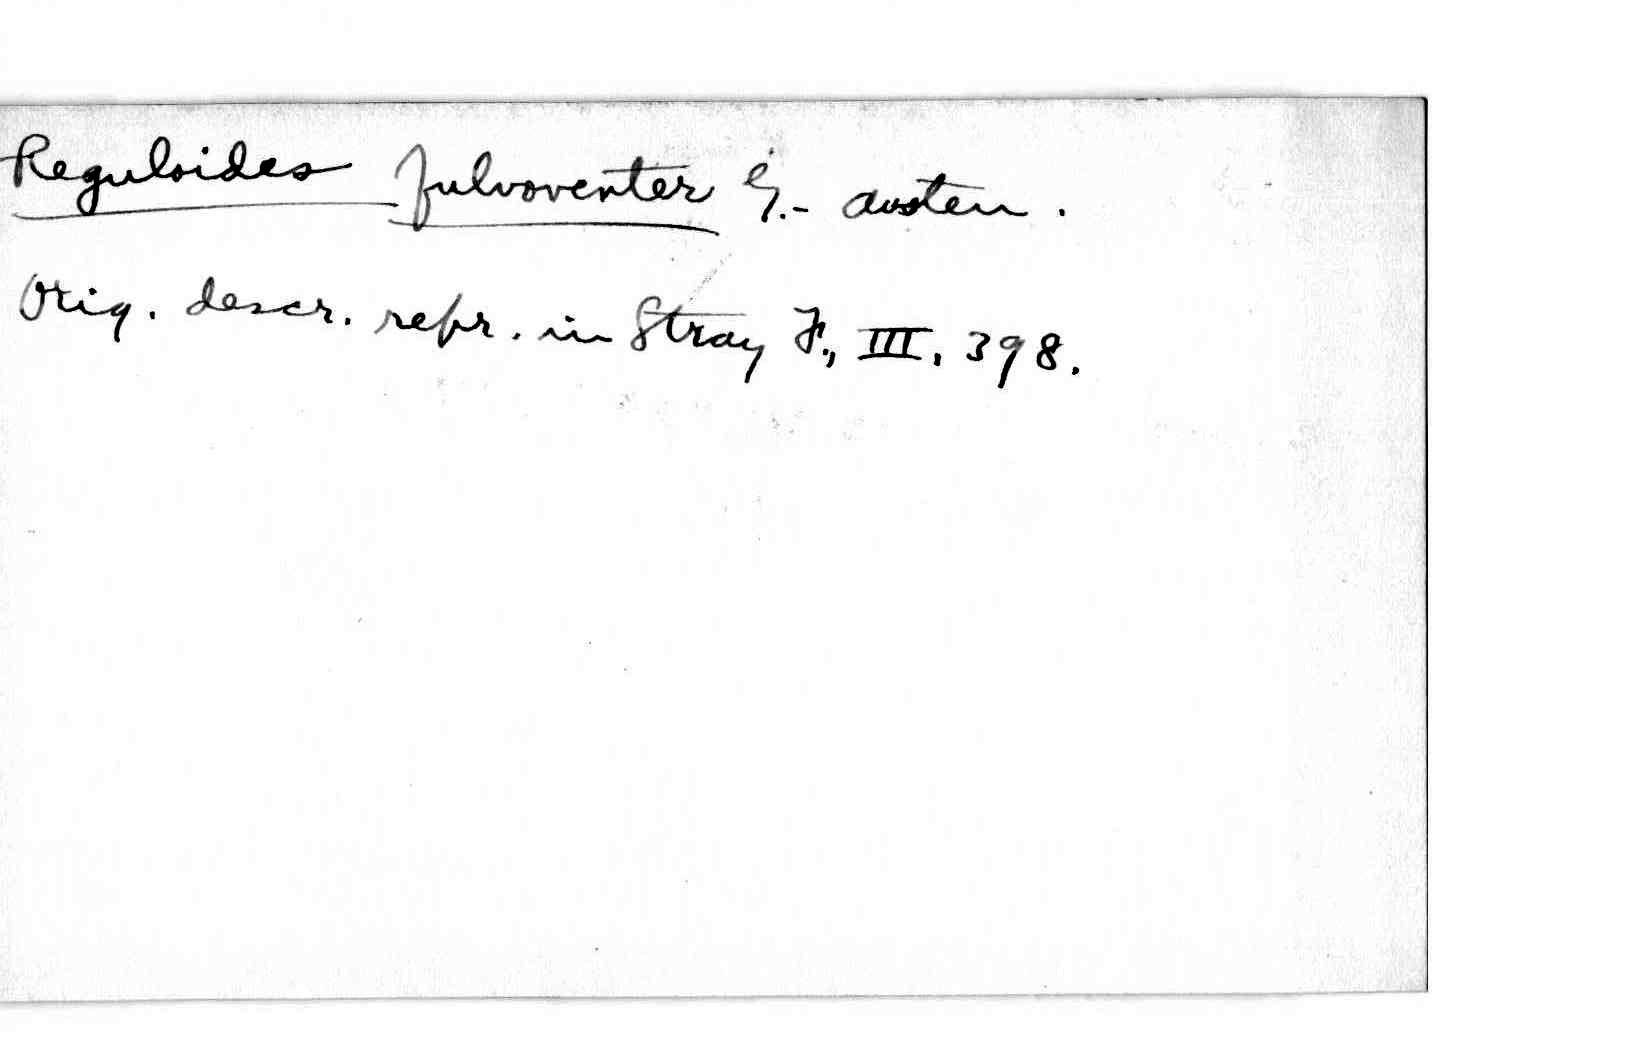 Reguloides fulvoventer G.- Austen.
Orig. descr. repr. in Stray F., III, 398.